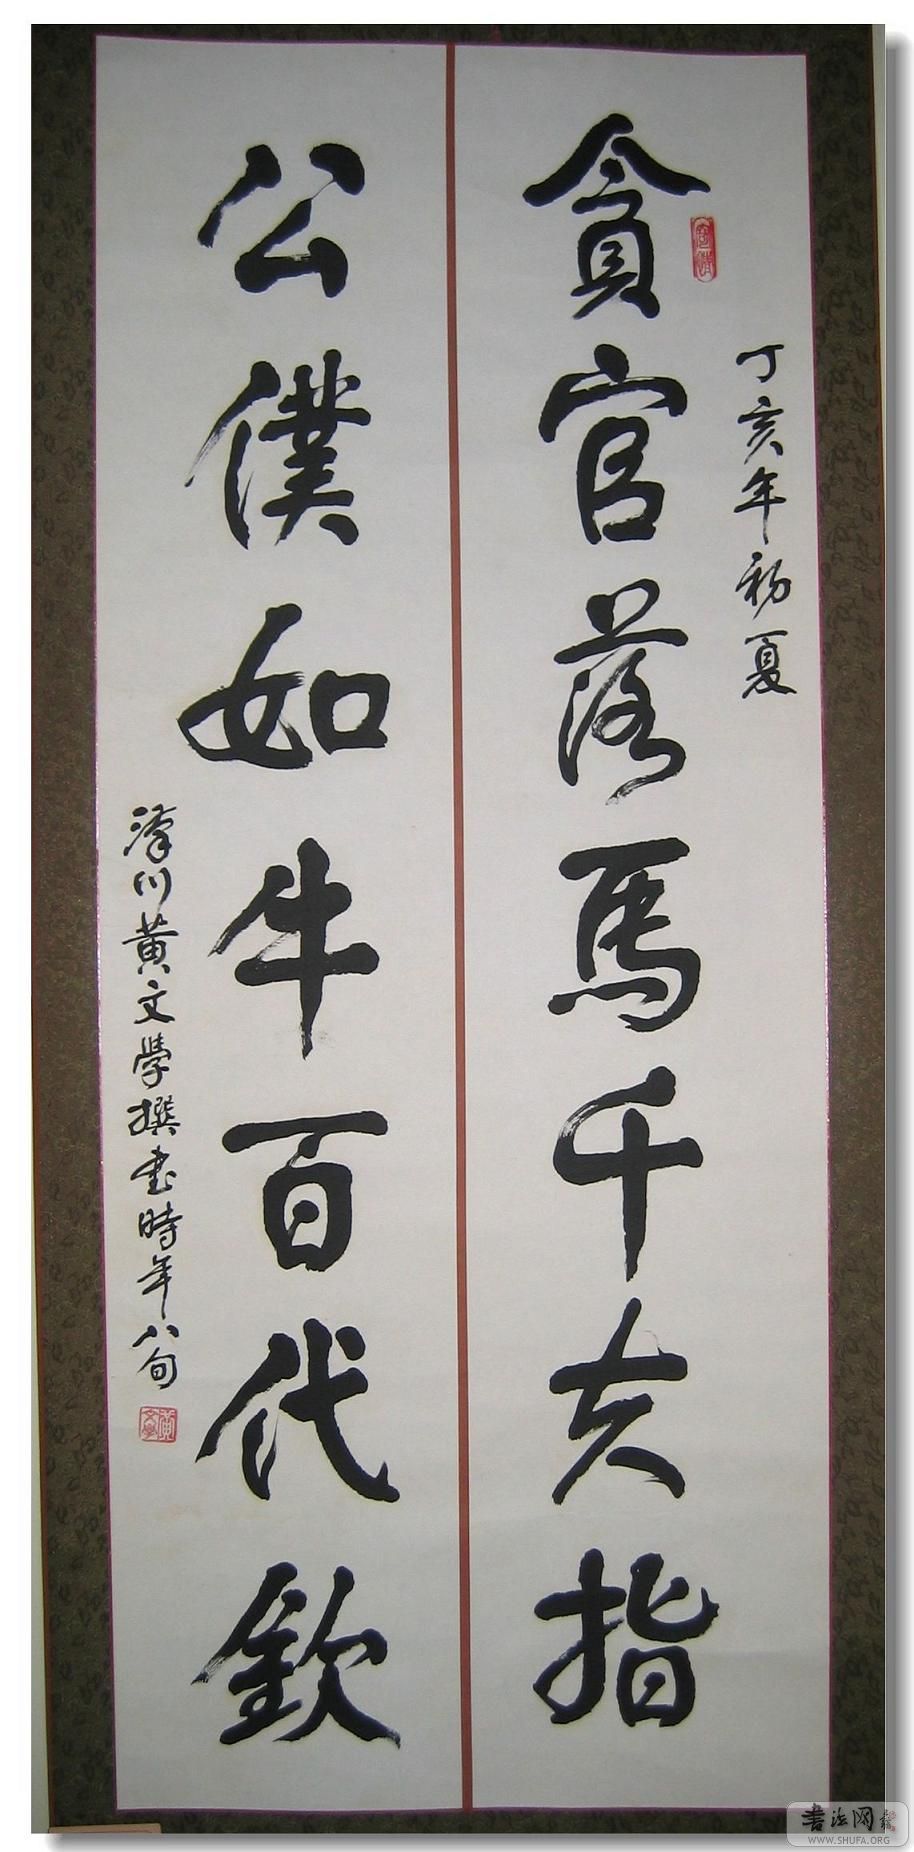 丁亥年初夏
貪官落馬千夫指
公僕如牛百代欽
川黃文學撰書時年八旬
黃文學
書法网
WWW.SHUFA.ORG